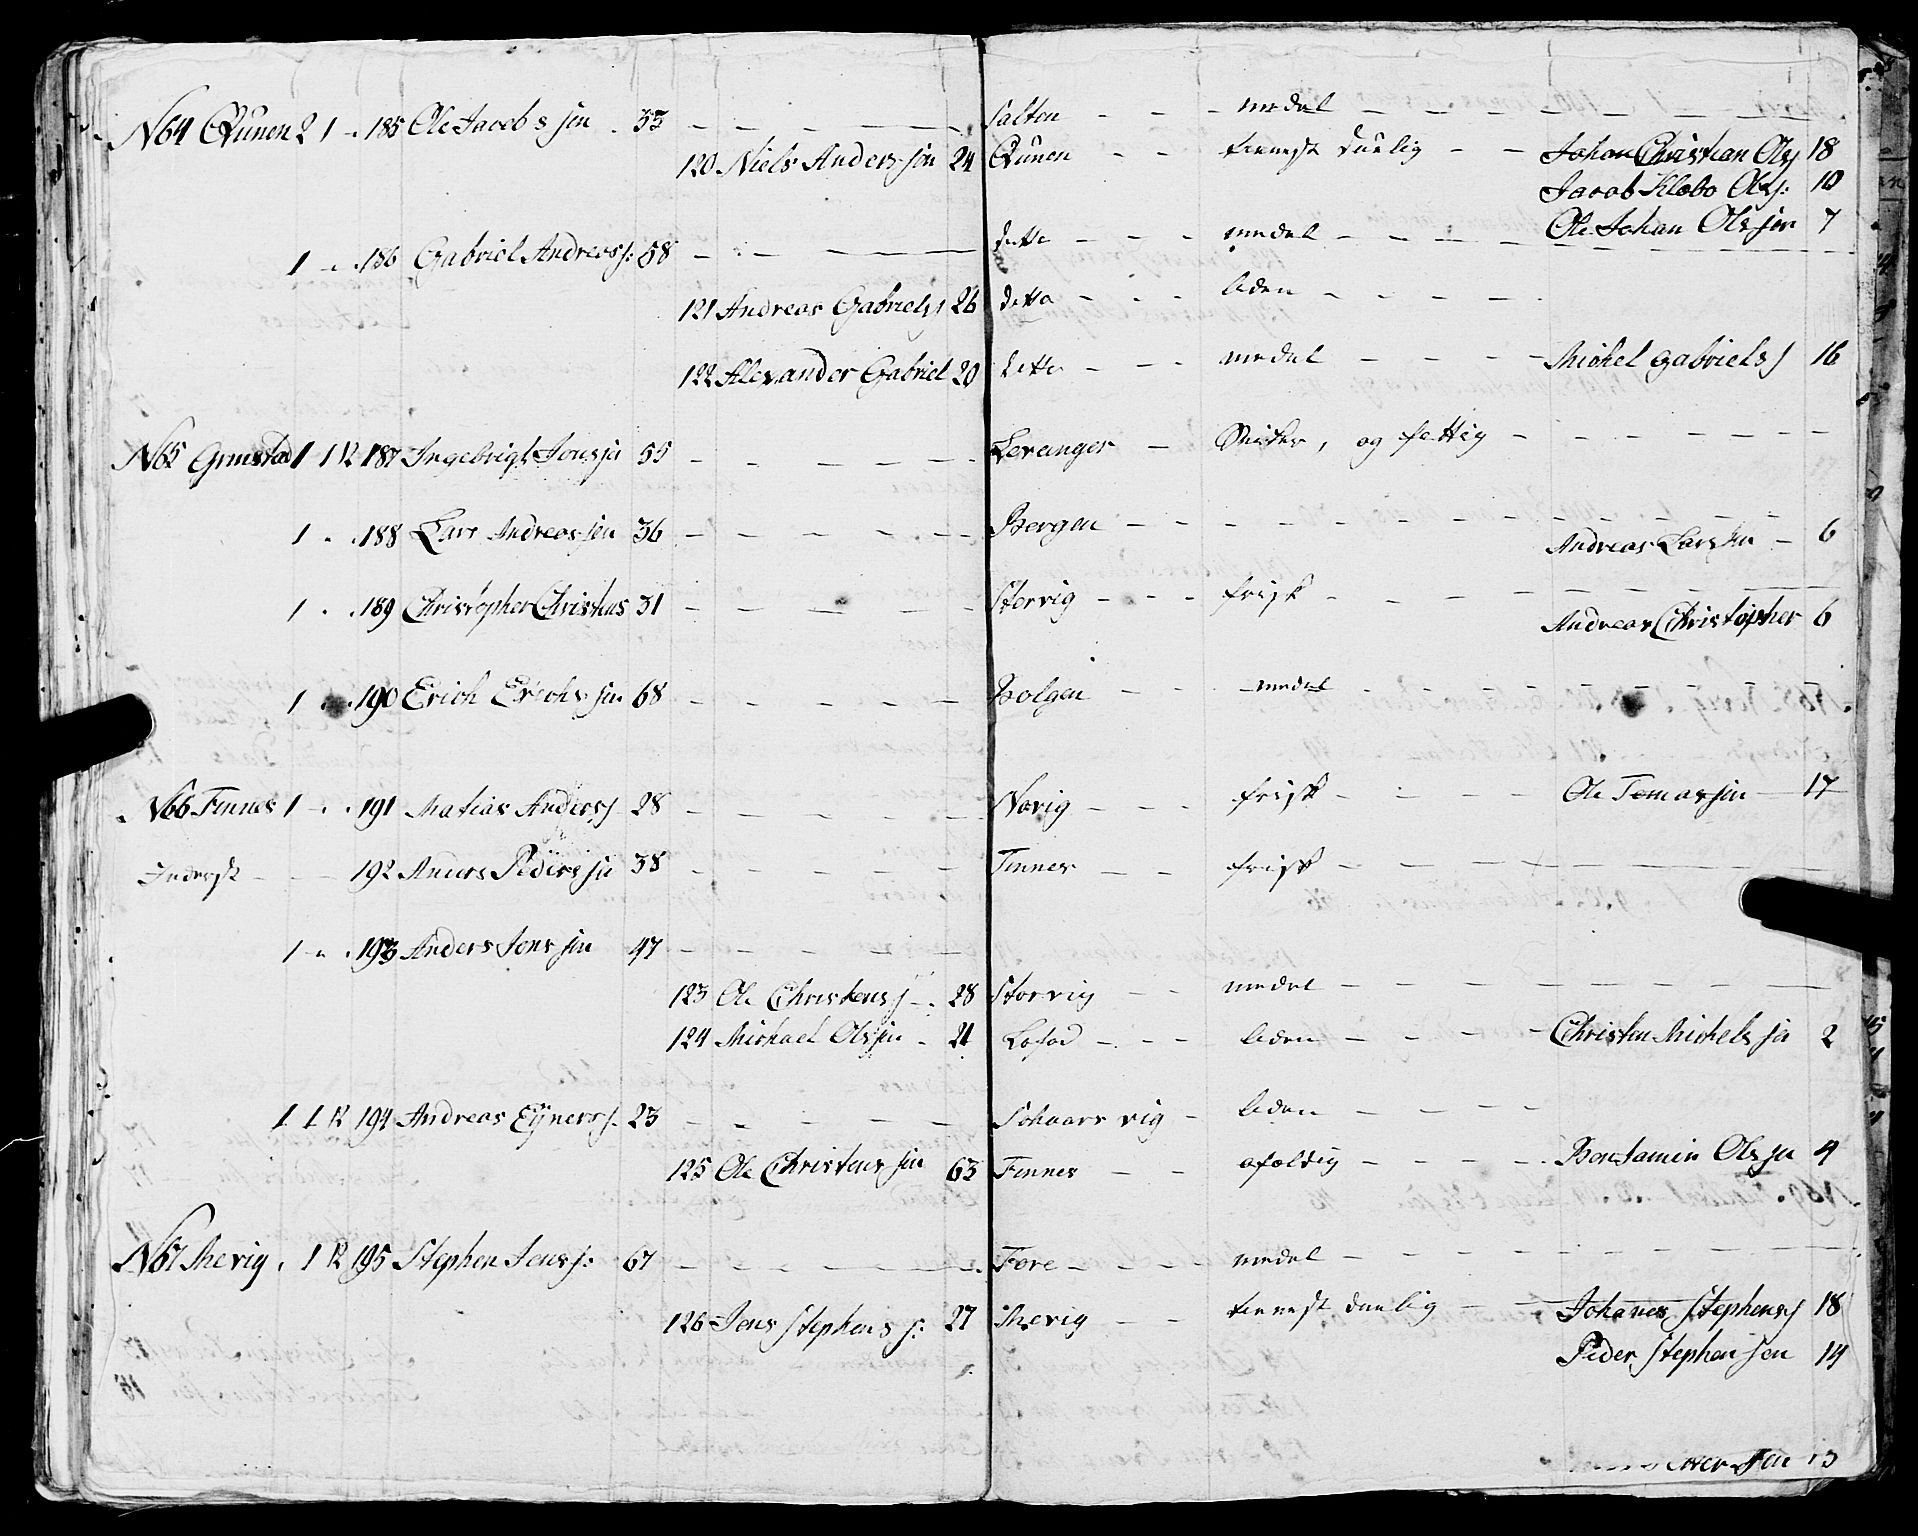 N64 Qvunen 2 1 - . 185 Ole Jacobs søn . 33 - - - - - Salten - - - medel - - - - - -
120 Niels Anders søn 24 Qvunen - - tienist duelig - - Johan Christian Ols 18
Jacob Klebo Ols: 10
1 - . 186 Gabriel Andreas s: 58 - - - - ditto - - - medel - - - - Ole Johan Ols søn 7
121 Andreas Gabriels s 26 ditto - - - liden - - - -
122 Alexander Gabriel 20 ditto - - - medel - - - - Michel Gabriels s 16
N65 Grimstad 1 1 R 187 Ingebrigt Jons sø 55 - - - - - Levanger - og fattig - - - - - -
1 . . 188 Lars Andreas sen 36 - - - - - Bergen - - - - - - - - Andreas Larssen - 6
1 . . 189 Christopher Christians 31 - - - - Storvig - - - frisk - - - - - Andreas Christopher 6
1 . . 190 Erich Erichs sen 68 - - - - - Bolgen - - - medel - - - - - - -
N66 Finnes 1 - . . 191 Matias Anders s 28 - - - - - Norvig - - - frisk - - - - Ole Tomas sen 17
Inderst - - 192 Anders Peders sø 38 - - - - - Finnes - - frisk - - - - -
1 - . 193 Anders Jens søn 47 - - - - -
123 Ole Christens s - . 28 Storvig - - medel - - - - - - -
124 Michael Ols sen - 21 Lofod - - - liden - - - - Christen Michels sø 2
1 1 R 194 Andreas Ejners s. 23 - - - - - vig - liden - - - -
125 Ole Christens søn 63 Finnes - - afældig - - - - Benjamin Ols sø 4
N67 . 1 R 195 Stephen Jens s: 67 - - - - - Fore - - - - medel - - - - - - -
126 Jens Stephens s: 27 - - tienist duelig - - Johanes Stephens s 18
Peder Stephen sen 14
sen 13